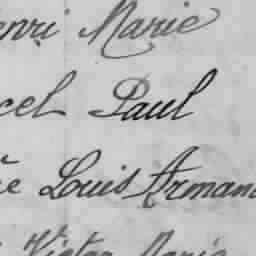 enri Marie
cel Paul
e Louis Arman
Victor Marie